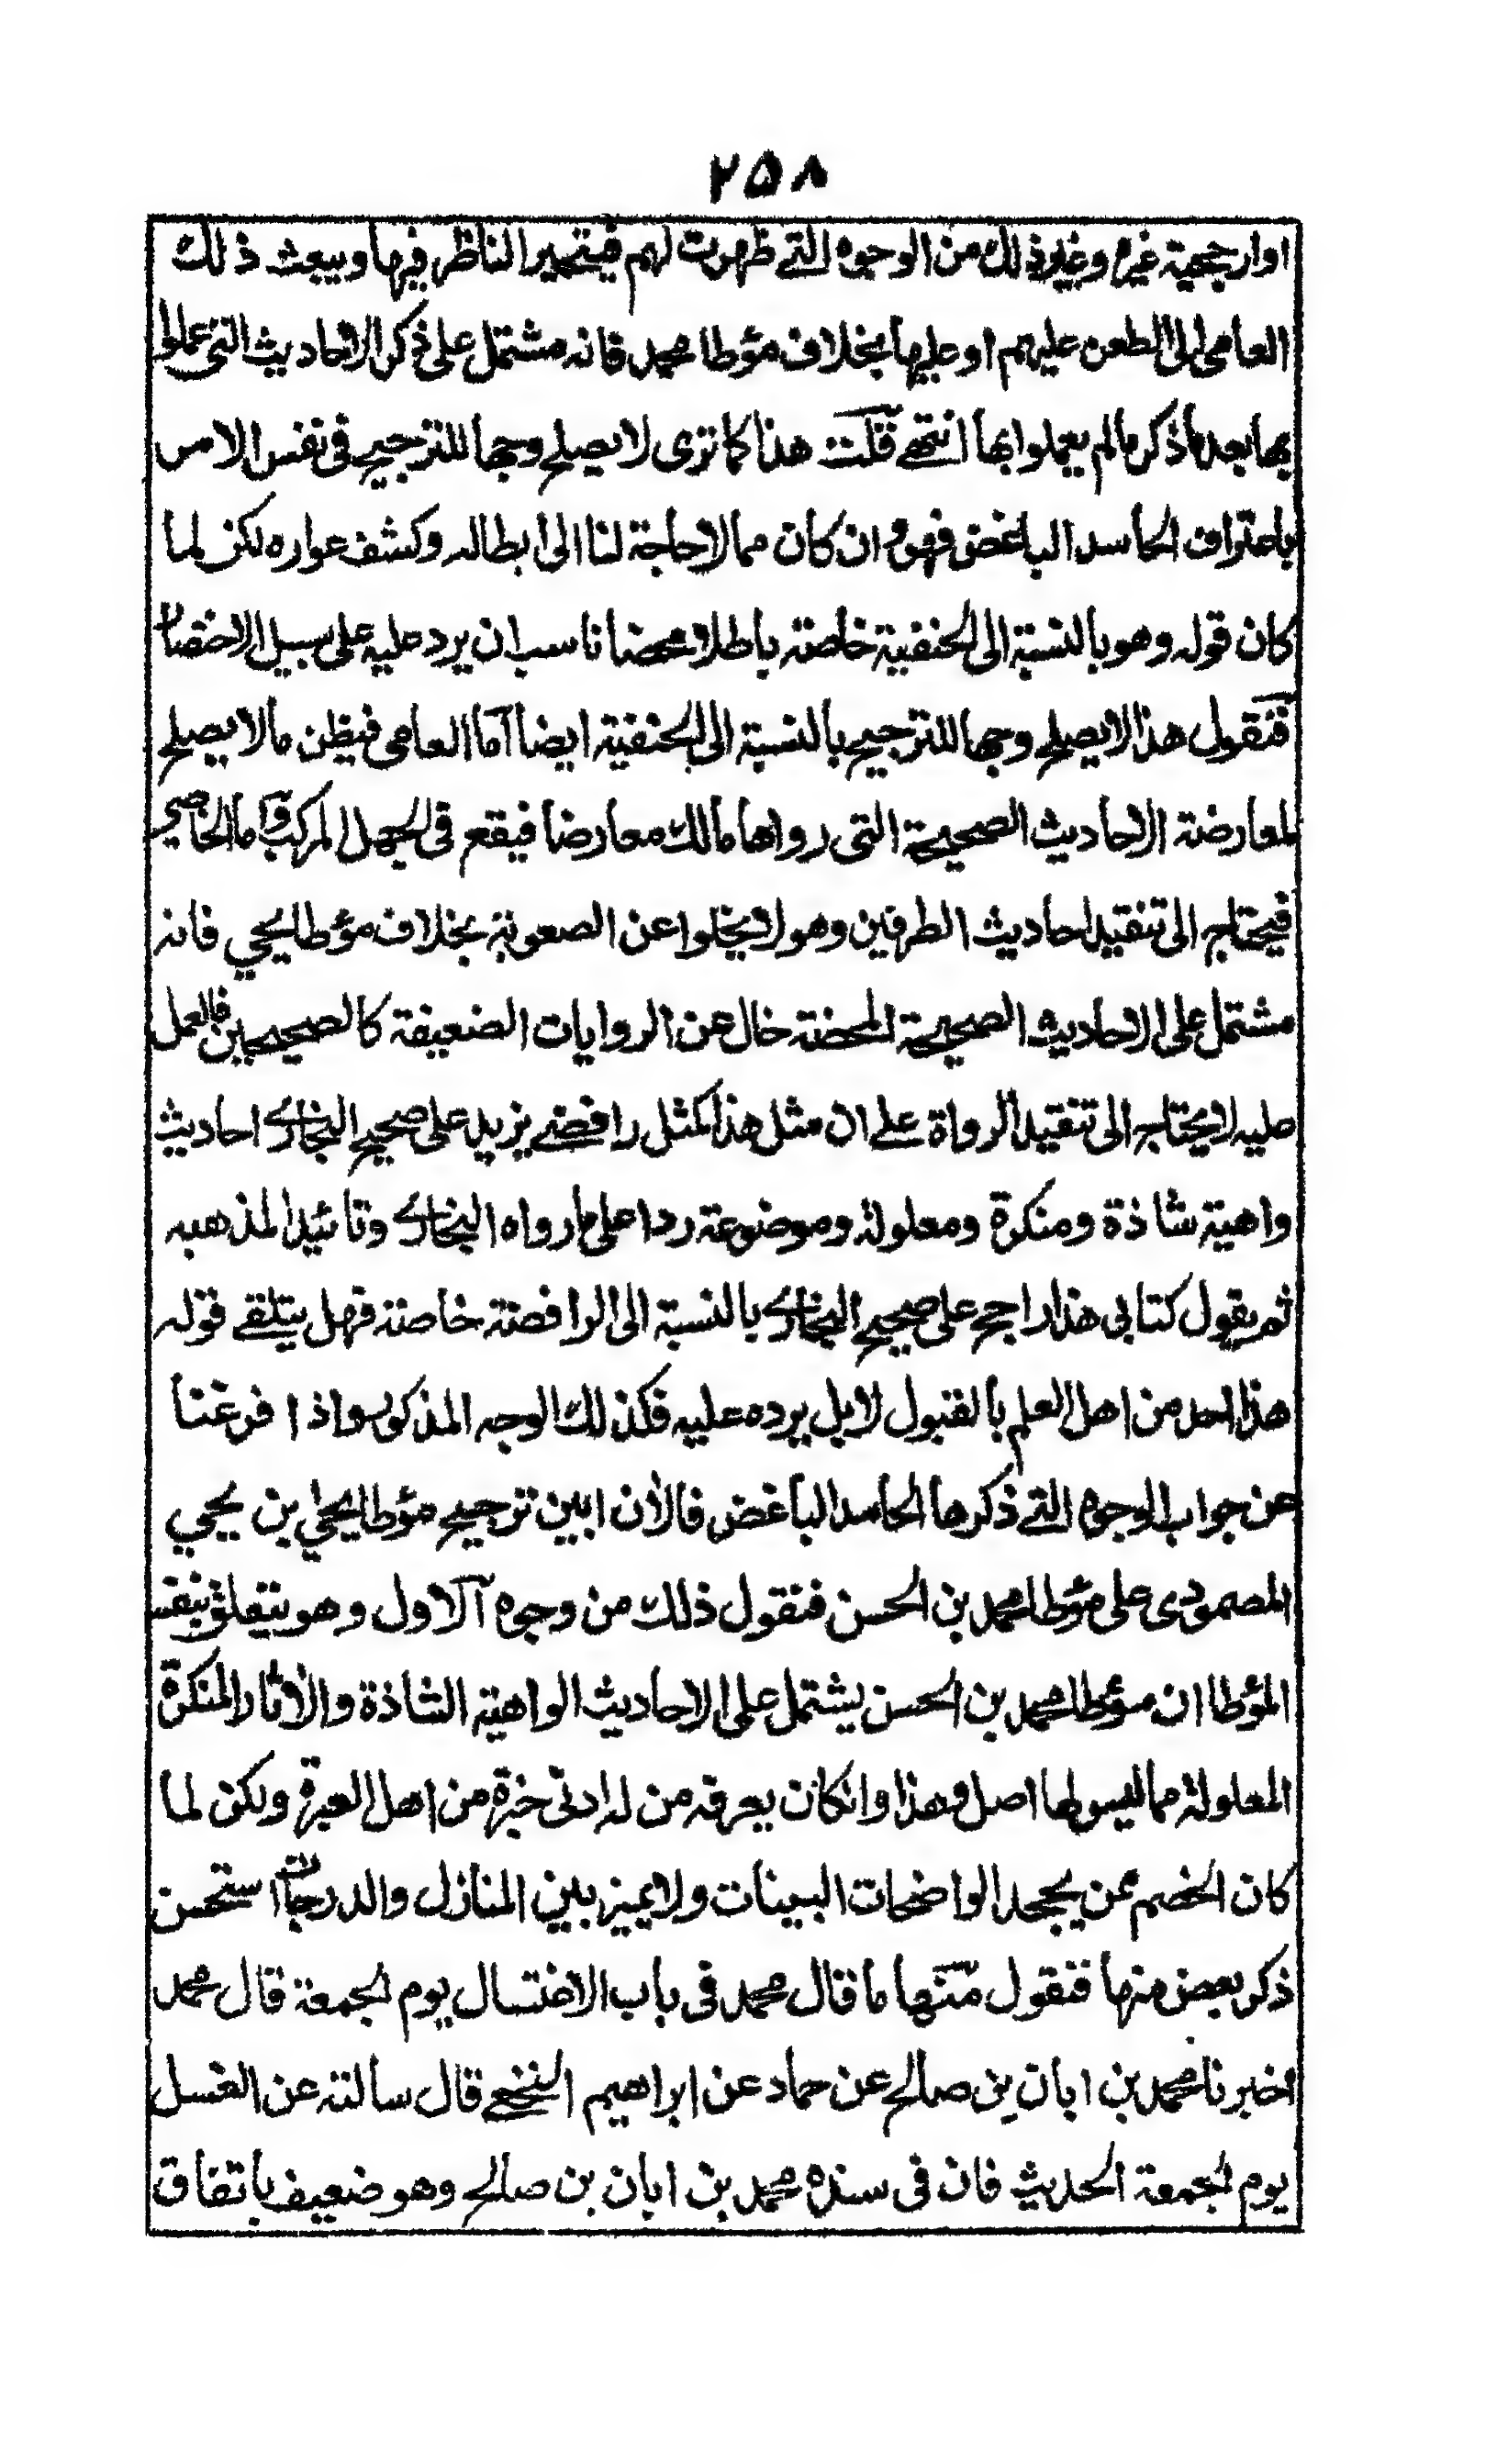 ٢٥٨
او ارجحية غيره وغير ذلك من الوجوه التے ظهرت لهم فيتحير الناظر فيها ويبعث ذلك
العامی الی الطعن عليهم او عليها بخلاف مؤطا محمد فانه مشتمل علی ذكر الاحاديث التی عملوا
بها بعد ما ذكر ما لم يعملوا بها انتهے قلت هذا كما تری لا يصلح وجها للترجيح فی نفس الامر
باعتراف الحاسد الباغض فهو وان كان مما لا حاجة لنا الی ابطاله وكشف عواره لكن لما
كان قوله وهو بالنسبة الی الحنفية خاصة باطلا محضا ناسب ان يرد عليه علی سبيل الاختصار
فنقول هذا لا يصلح وجها للترجيح بالنسبة الی الحنفية ايضا اما العامی فيظن ما لا يصلح
لمعارضة الاحاديث الصحيحة التی رواها مالك معارضا فيقع فی الجهل المركب واما الخاصی
فيحتاج الی تنقيد احاديث الطرفين وهو لا يخلوا عن الصعوبة بخلاف مؤطا يحيی فانه
مشتمل علی الاحاديث الصحيحة المحضة خال عن الروايات الضعيفة كالصحيحين فالعمل
عليه لا يحتاج الی تنقيد الرواة علے ان مثل هذا كمثل رافضے يزيد علی صحيح البخاری احاديث
واهية شاذة ومنكرة ومعلولة وموضوعة ردا علی ما رواه البخاری وتائيدا لمذهبه
ثم يقول كتابی هذا راجح علی صحيح البخاری بالنسبة الی الرافضة خاصة فهل يتلقے قوله
هذا احد من اهل العلم بالقبول لا بل يرده عليه فكذلك الوجه المذكور واذا فرغنا
عن جواب الوجوه التے ذكرها الحاسد الباغض فالاٰن ابين ترجيح مؤطا يحيٰی بن يحيی
المصمودی علی مؤطا محمد بن الحسن فنقول ذلك من وجوه الاول وهو يتعلق بنفس
المؤطا ان مؤطا محمد بن الحسن يشتمل علی الاحاديث الواهية الشاذة والاٰثار المنكرة
المعلولة مما ليس لها اصل وهذا وانكان يعرفه من له ادنی خبرة من اهل العبرة ولكن لما
كان الخصم ممن يجحد الواضحات البينات ولا يميز بين المنازل والدرجات استحسن
ذكر بعض منها فنقول منها ما قال محمد فی باب الاغتسال يوم الجمعة قال محمد
اخبرنا محمد بن ابان بن صالح عن حماد عن ابراهيم النخعے قال سالته عن الغسل
يوم الجمعة الحديث فان فی سنده محمد بن ابان بن صالح وهو ضعيف باتفاق